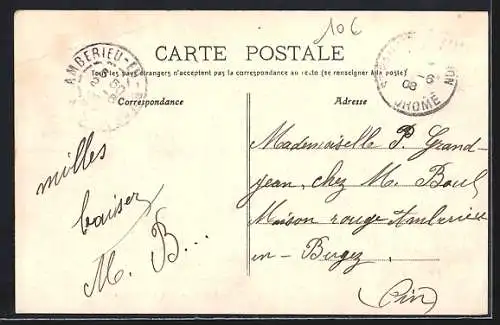 106
CARTE POSTALE
Tous les pays étrangers n'acceptent pas la correspondance au recto (se renseigner à la poste)
AMBERIEU-EN-
Correspondance
Adresse
-6
08
RHONE
milles
baisers
M. B...
Mademoiselle P. Grand-
jean, chez M. Boul
Maison rouge Amberieu
en - Bugey
(Ain)